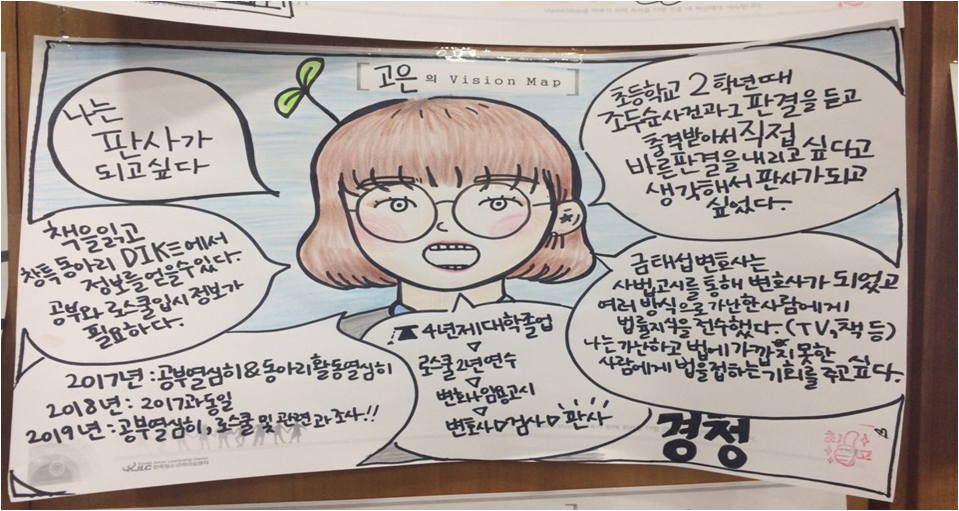 고은의 Vision Map
나는
판사가
되고싶다
초등학교 2학년때
조두순사건과그 판결을 듣고
충격받아서 직접
바른판결을 내리고 싶다고
생각해서 판사가 되고
싶었다.
책을읽고
창특동아리 DIKE에서
정보를 얻을수있다.
공부와 로스쿨입시 정보가
필요하다.
금태섭변호사는
사법고시를 통해 변호사가 되었고
여러 방식으로 가난한사람에게
법률지식을 전수했다. (TV, 책 등)
나는 가난하고 법에 가깝지 못한
사람에게 법을접하는 기회를 주고 싶다.
4년제 대학졸업
로스쿨 2년 연수
변호사임용고시
변호사 검사 판사
2017년 : 공부열심히 & 동아리 활동열심히
2018년 : 2017과동일
2019년 : 공부열심히, 로스쿨 및 관련 과 조사!!
경정
KJLC